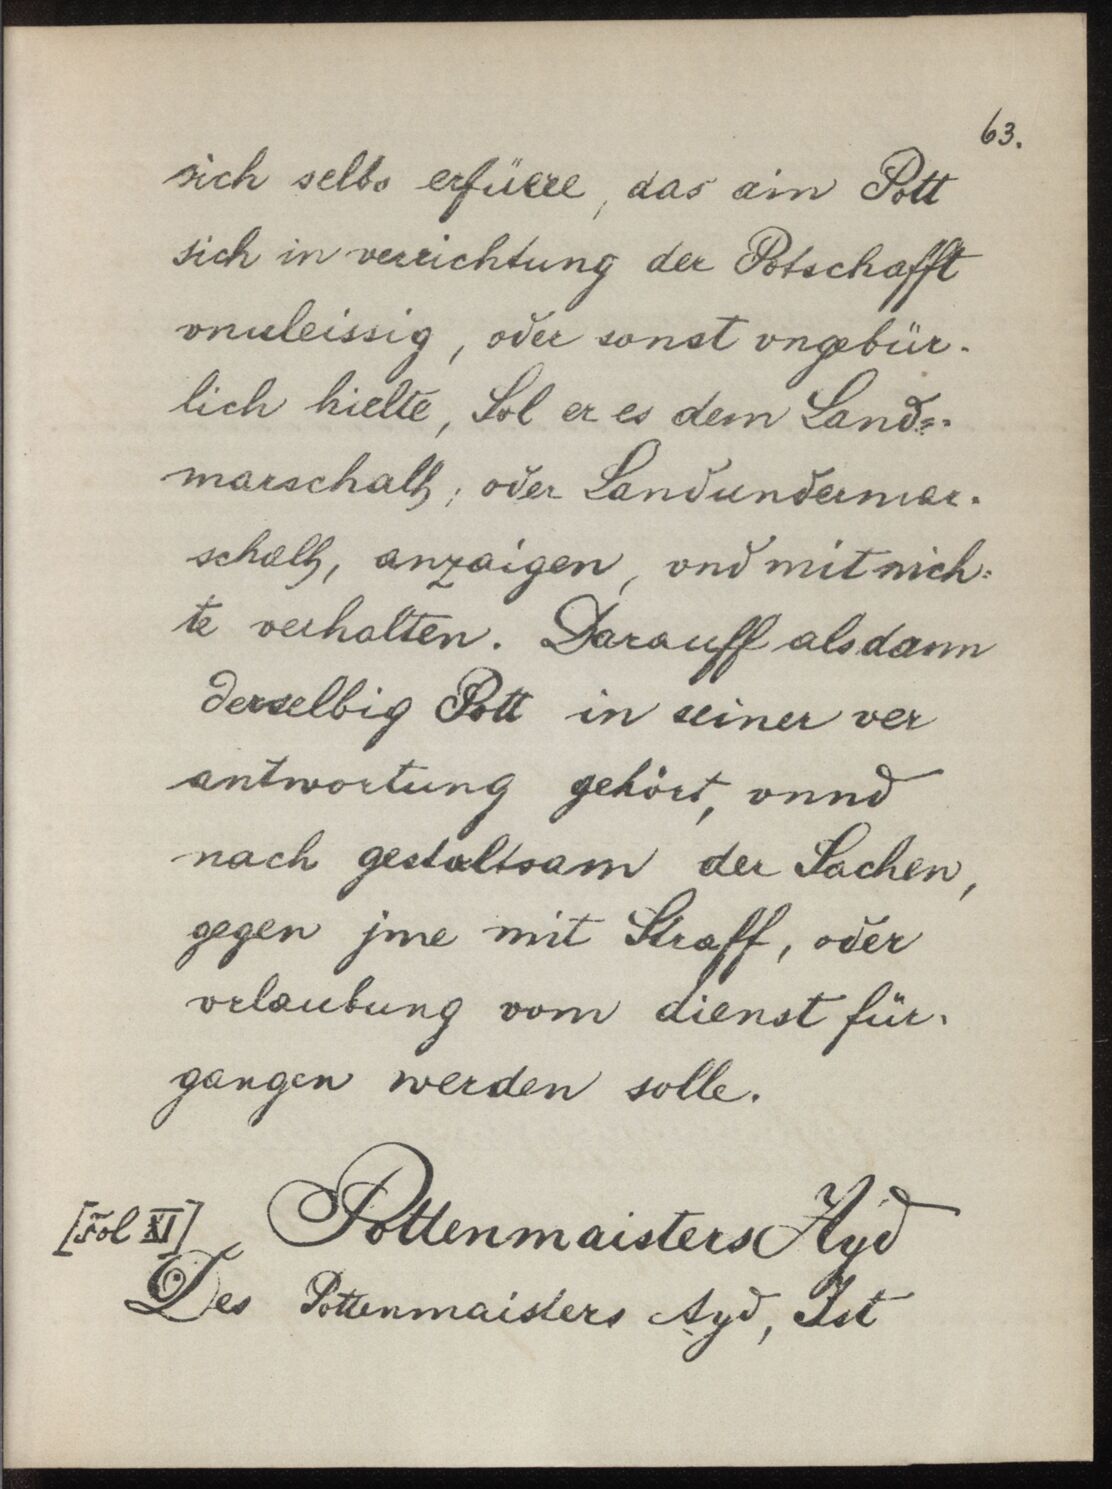 63.
sich selbs erfüere, das ain Pott
sich in verrichtung der Potschafft
vnuleissig, oder sonst vngebür-
lich hielte, Sol er es dem Land=
marschalh, oder Landundermar-
schalh, anzaigen, vnd mit nich=
te verhalten. Darauff alsdann
derselbig Pott in seiner ver
antwortung gehört, vnnd
nach gestaltsam der Sachen,
gegen jme mit Straff, oder
vrlaubung vom dienst für-
gangen werden solle.
[Fol XI] Pottenmaisters Ayd
Des Pottenmaisters Ayd, Ist